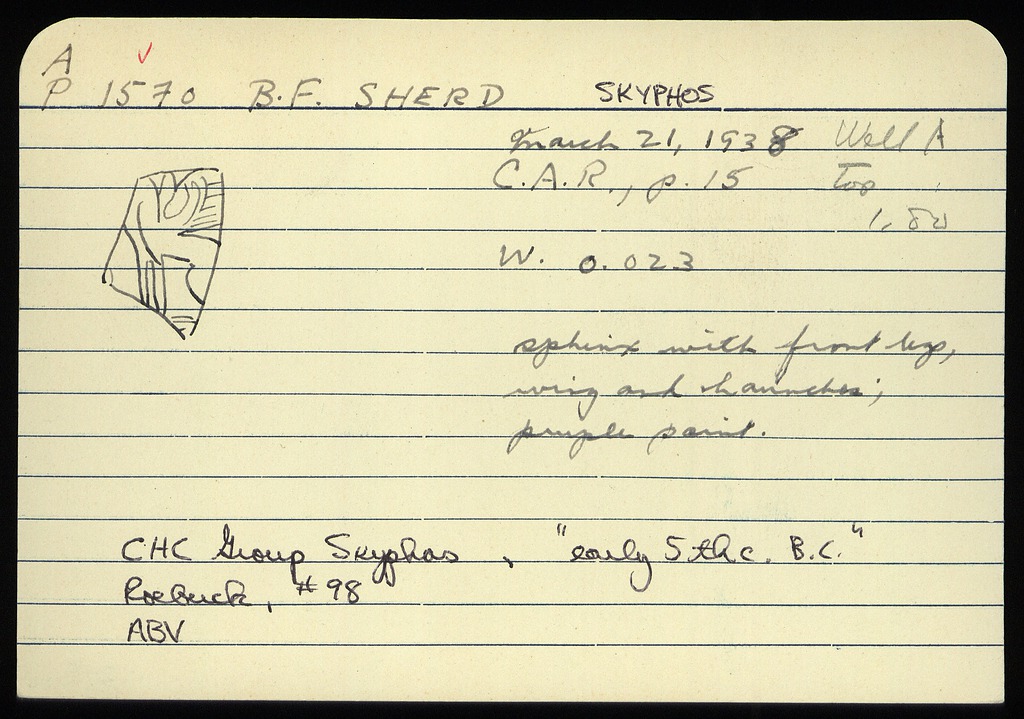 A
P 1570 B.F. SHERD SKYPHOS
March 21, 1938 Well A
C.A.R., p. 15 Top
1.80
W. 0.023
sphinx with front legs,
wing and haunches;
purple paint.
CHC Group Skyphos, "early 5th c. B.C."
Roebuck, #98
ABV